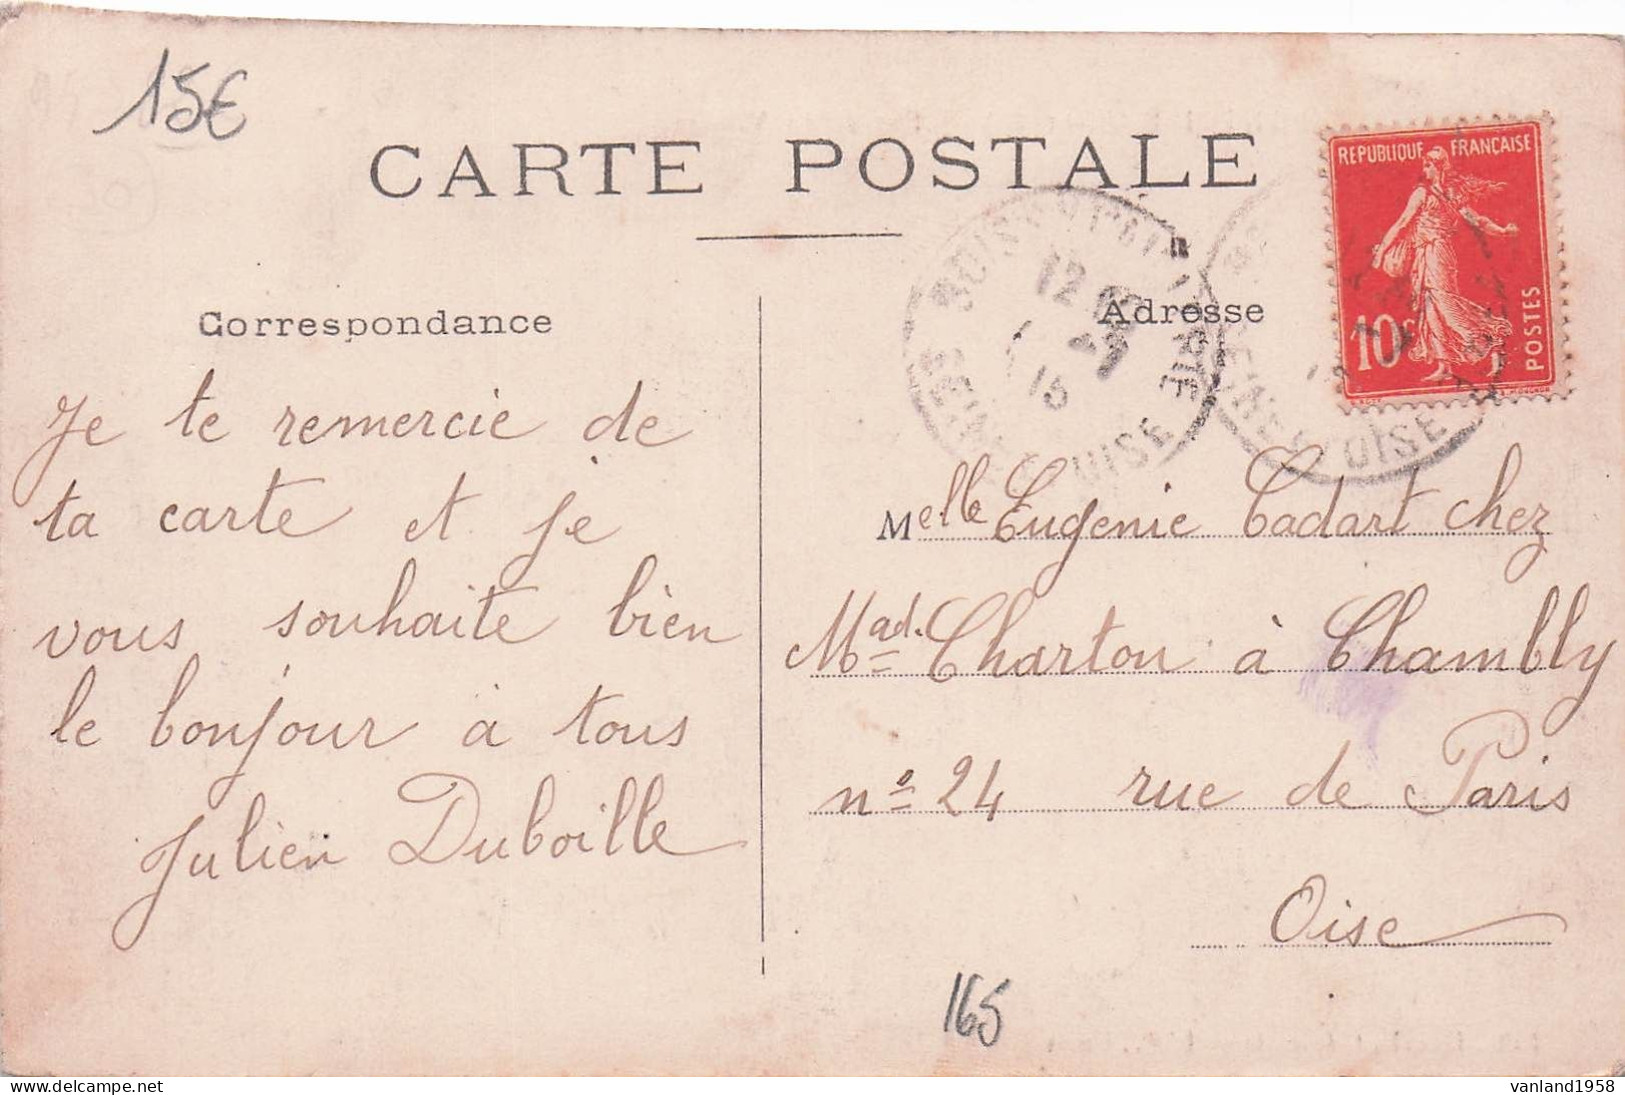 15€
CARTE POSTALE
REPUBLIQUE FRANÇAISE
10c
POSTES
Correspondance
Adresse
12
15
OISE
OISE
Je te remercie de
ta carte et je
vous souhaite bien
le bonjour à tous
Julien Duboille
Melle Eugenie Cadart chez
Mad. Charton à Chambly
n° 24 rue de Paris
Oise
165
vanland1958